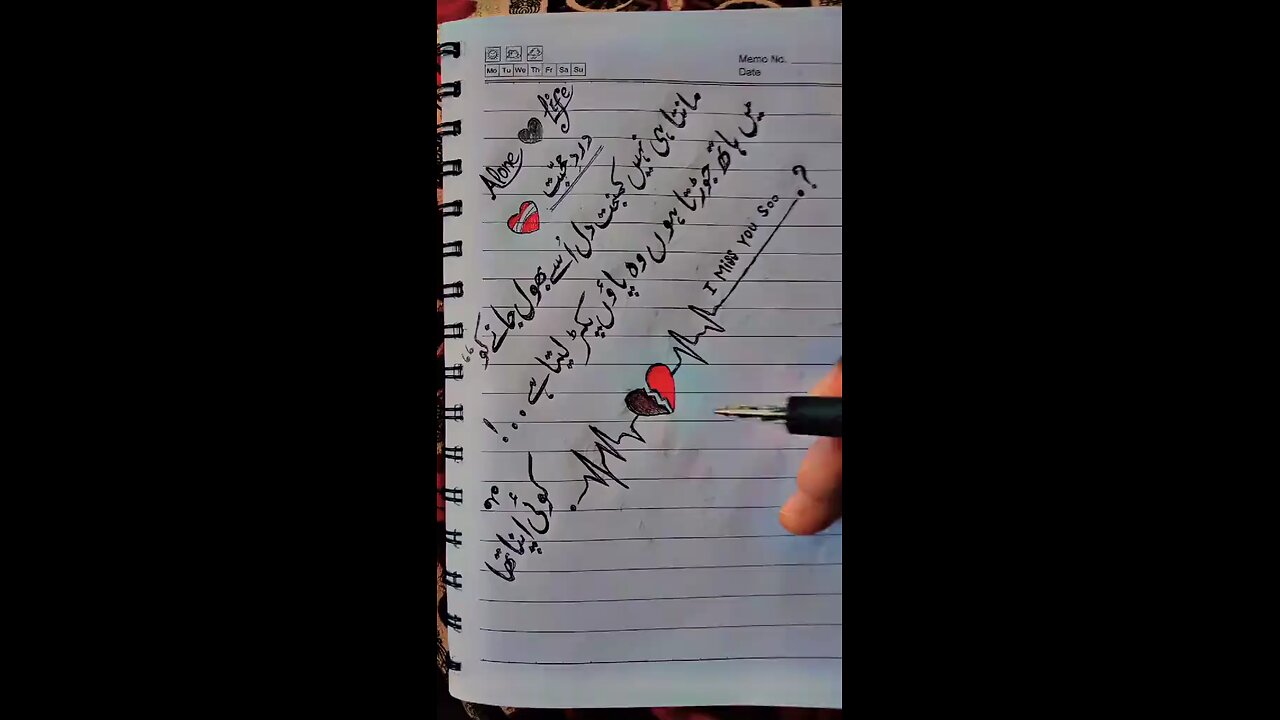 Memo No.
Date
Mo Tu We Th Fr Sa Su
Alone Life
درد محبت
مانتا ہی نہیں کمبخت دل اُسے بھول جانے کو
میں ہاتھ جوڑتا ہوں وہ پاؤں پکڑ لیتا ہے...!
I Miss You Soo ?
کوئی اپنا تھا